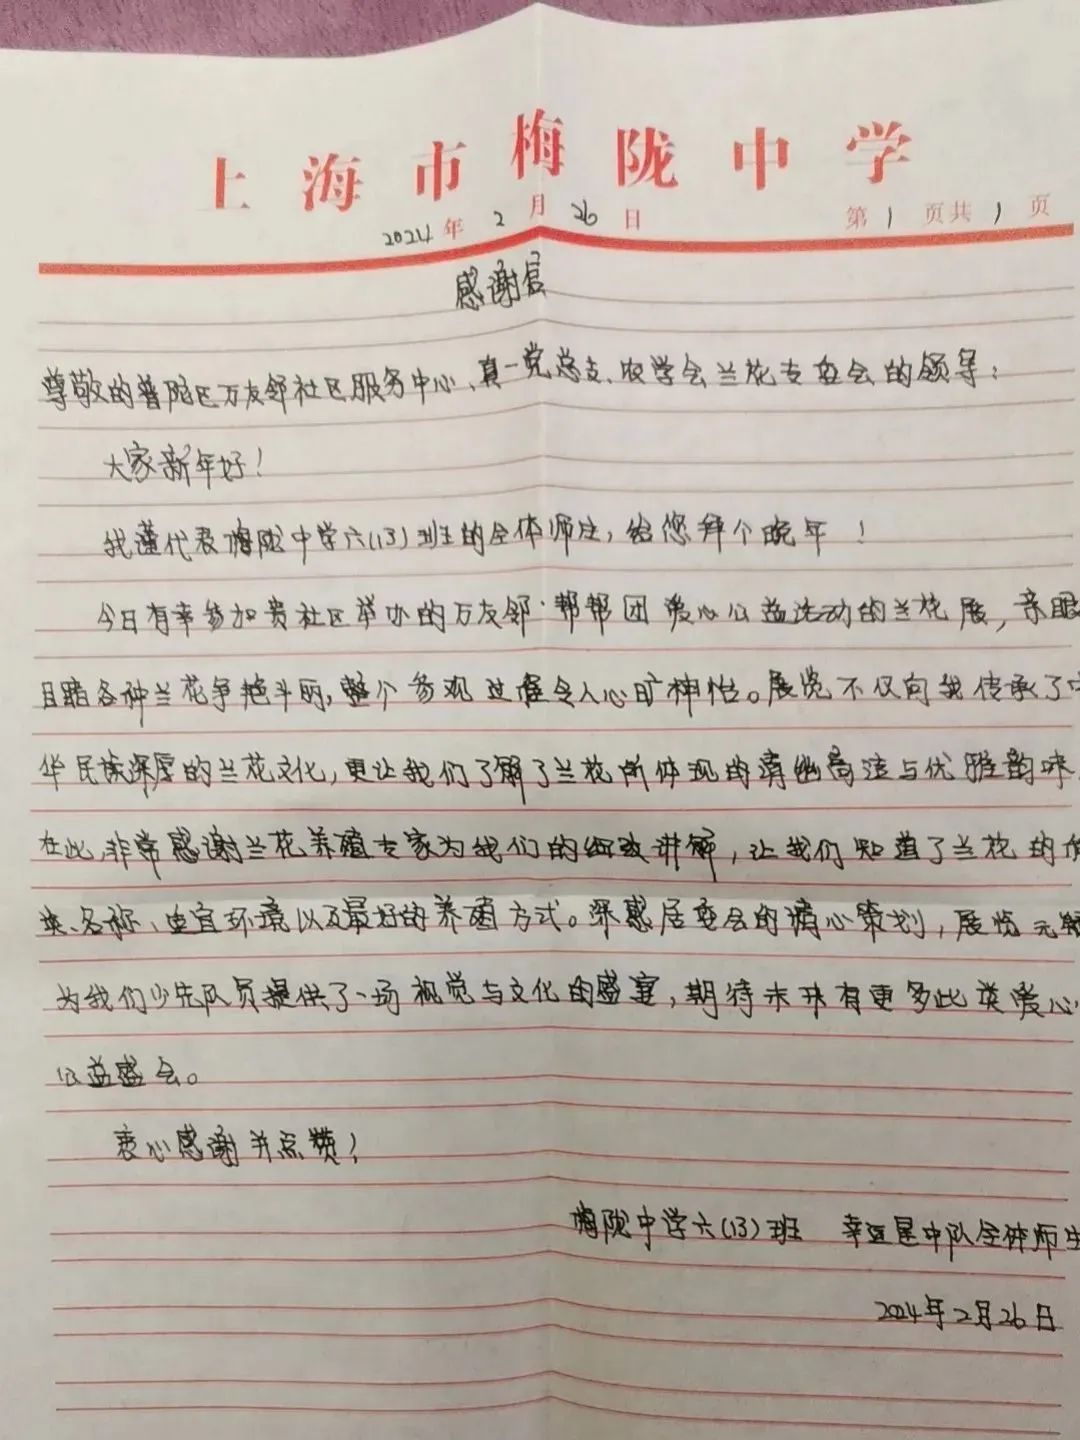 上海市梅陇中学
2024年2月26日 第1页共1页
感谢信
尊敬的普陀区万友邻社区服务中心、真一党总支、农学会兰花专委会的领导：
大家新年好！
我谨代表梅陇中学六(13)班的全体师生，给您拜个晚年！
今日有幸参加贵社区举办的万友邻·帮帮团爱心公益活动的兰花展，亲眼
目睹各种兰花争艳斗丽，整个参观过程令人心旷神怡。展览不仅向我传承了中
华民族深厚的兰花文化，更让我们了解了兰花所体现的清幽高洁与优雅韵味。
在此，非常感谢兰花养殖专家为我们的细致讲解，让我们知道了兰花的
类、名称、宜环境以及最好的养殖方式。深感居委会的精心策划，展览
为我们少先队员提供了一场视觉与文化的盛宴，期待未来有更多此类爱心
公益盛会。
衷心感谢并点赞！
梅陇中学六(13)班 幸运星中队全体师生
2024年2月26日